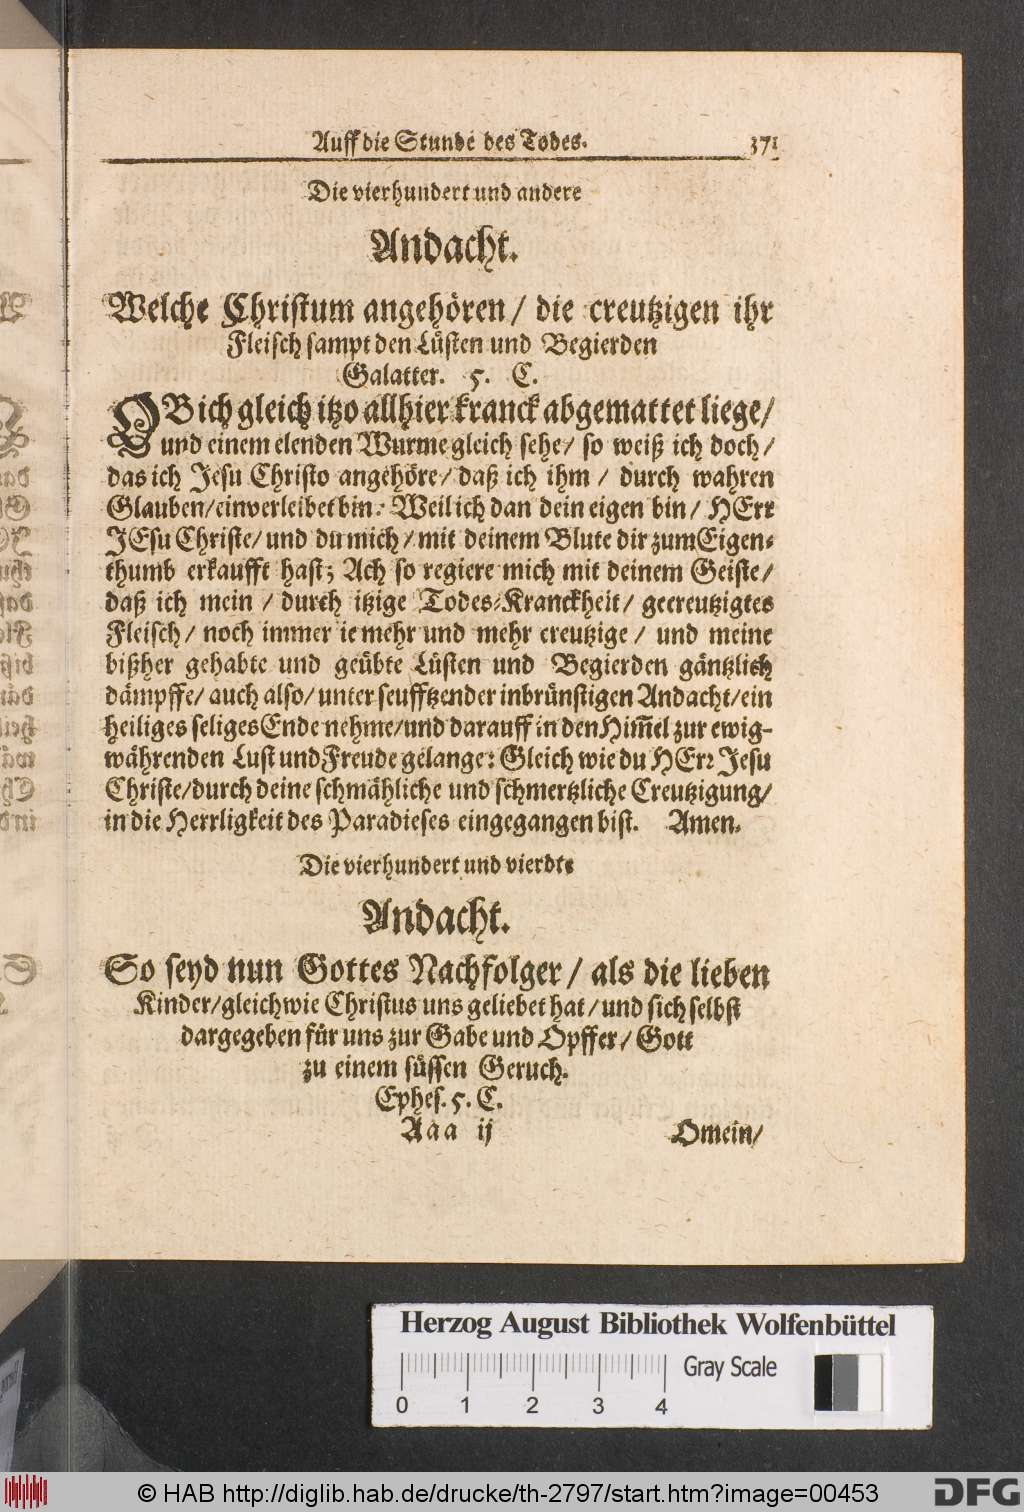 Auff die Stunde des Todes. 371
Die vierhundert und andere
Andacht.
Welche Christum angehören / die creutzigen ihr
Fleisch sampt den Lüsten und Begierden
Galatter. 5. C.
OB ich gleich itzo allhier kranck abgemattet liege /
und einem elenden Wurme gleich sehe / so weiß ich doch /
das ich Jesu Christo angehöre / daß ich ihm / durch wahren
Glauben / einverleibet bin. Weil ich dan dein eigen bin / HErr
JEsu Christe / und du mich / mit deinem Blute dir zum Eigen-
thumb erkaufft hast; Ach so regiere mich mit deinem Geiste /
daß ich mein / durch itzige Todes-Kranckheit / gecreutzigtes
Fleisch / noch immer ie mehr und mehr creutzige / und meine
bißher gehabte und geübte Lüsten und Begierden gäntzlich
dämpffe / auch also / unter seufftzender inbrünstigen Andacht / ein
heiliges seliges Ende nehme / und darauff in den Him̃el zur ewig-
währenden Lust und Freude gelange: Gleich wie du HErr Jesu
Christe / durch deine schmähliche und schmertzliche Creutzigung /
in die Herrligkeit des Paradieses eingegangen bist. Amen.
Die vierhundert und vierdte
Andacht.
So seyd nun Gottes Nachfolger / als die lieben
Kinder / gleichwie Christus uns geliebet hat / und sich selbst
dargegeben für uns zur Gabe und Opffer / Gott
zu einem süssen Geruch.
Ephes. 5. C.
Aaa ij Omein /
Herzog August Bibliothek Wolfenbüttel
Gray Scale
0 1 2 3 4
© HAB http://diglib.hab.de/drucke/th-2797/start.htm?image=00453
DFG